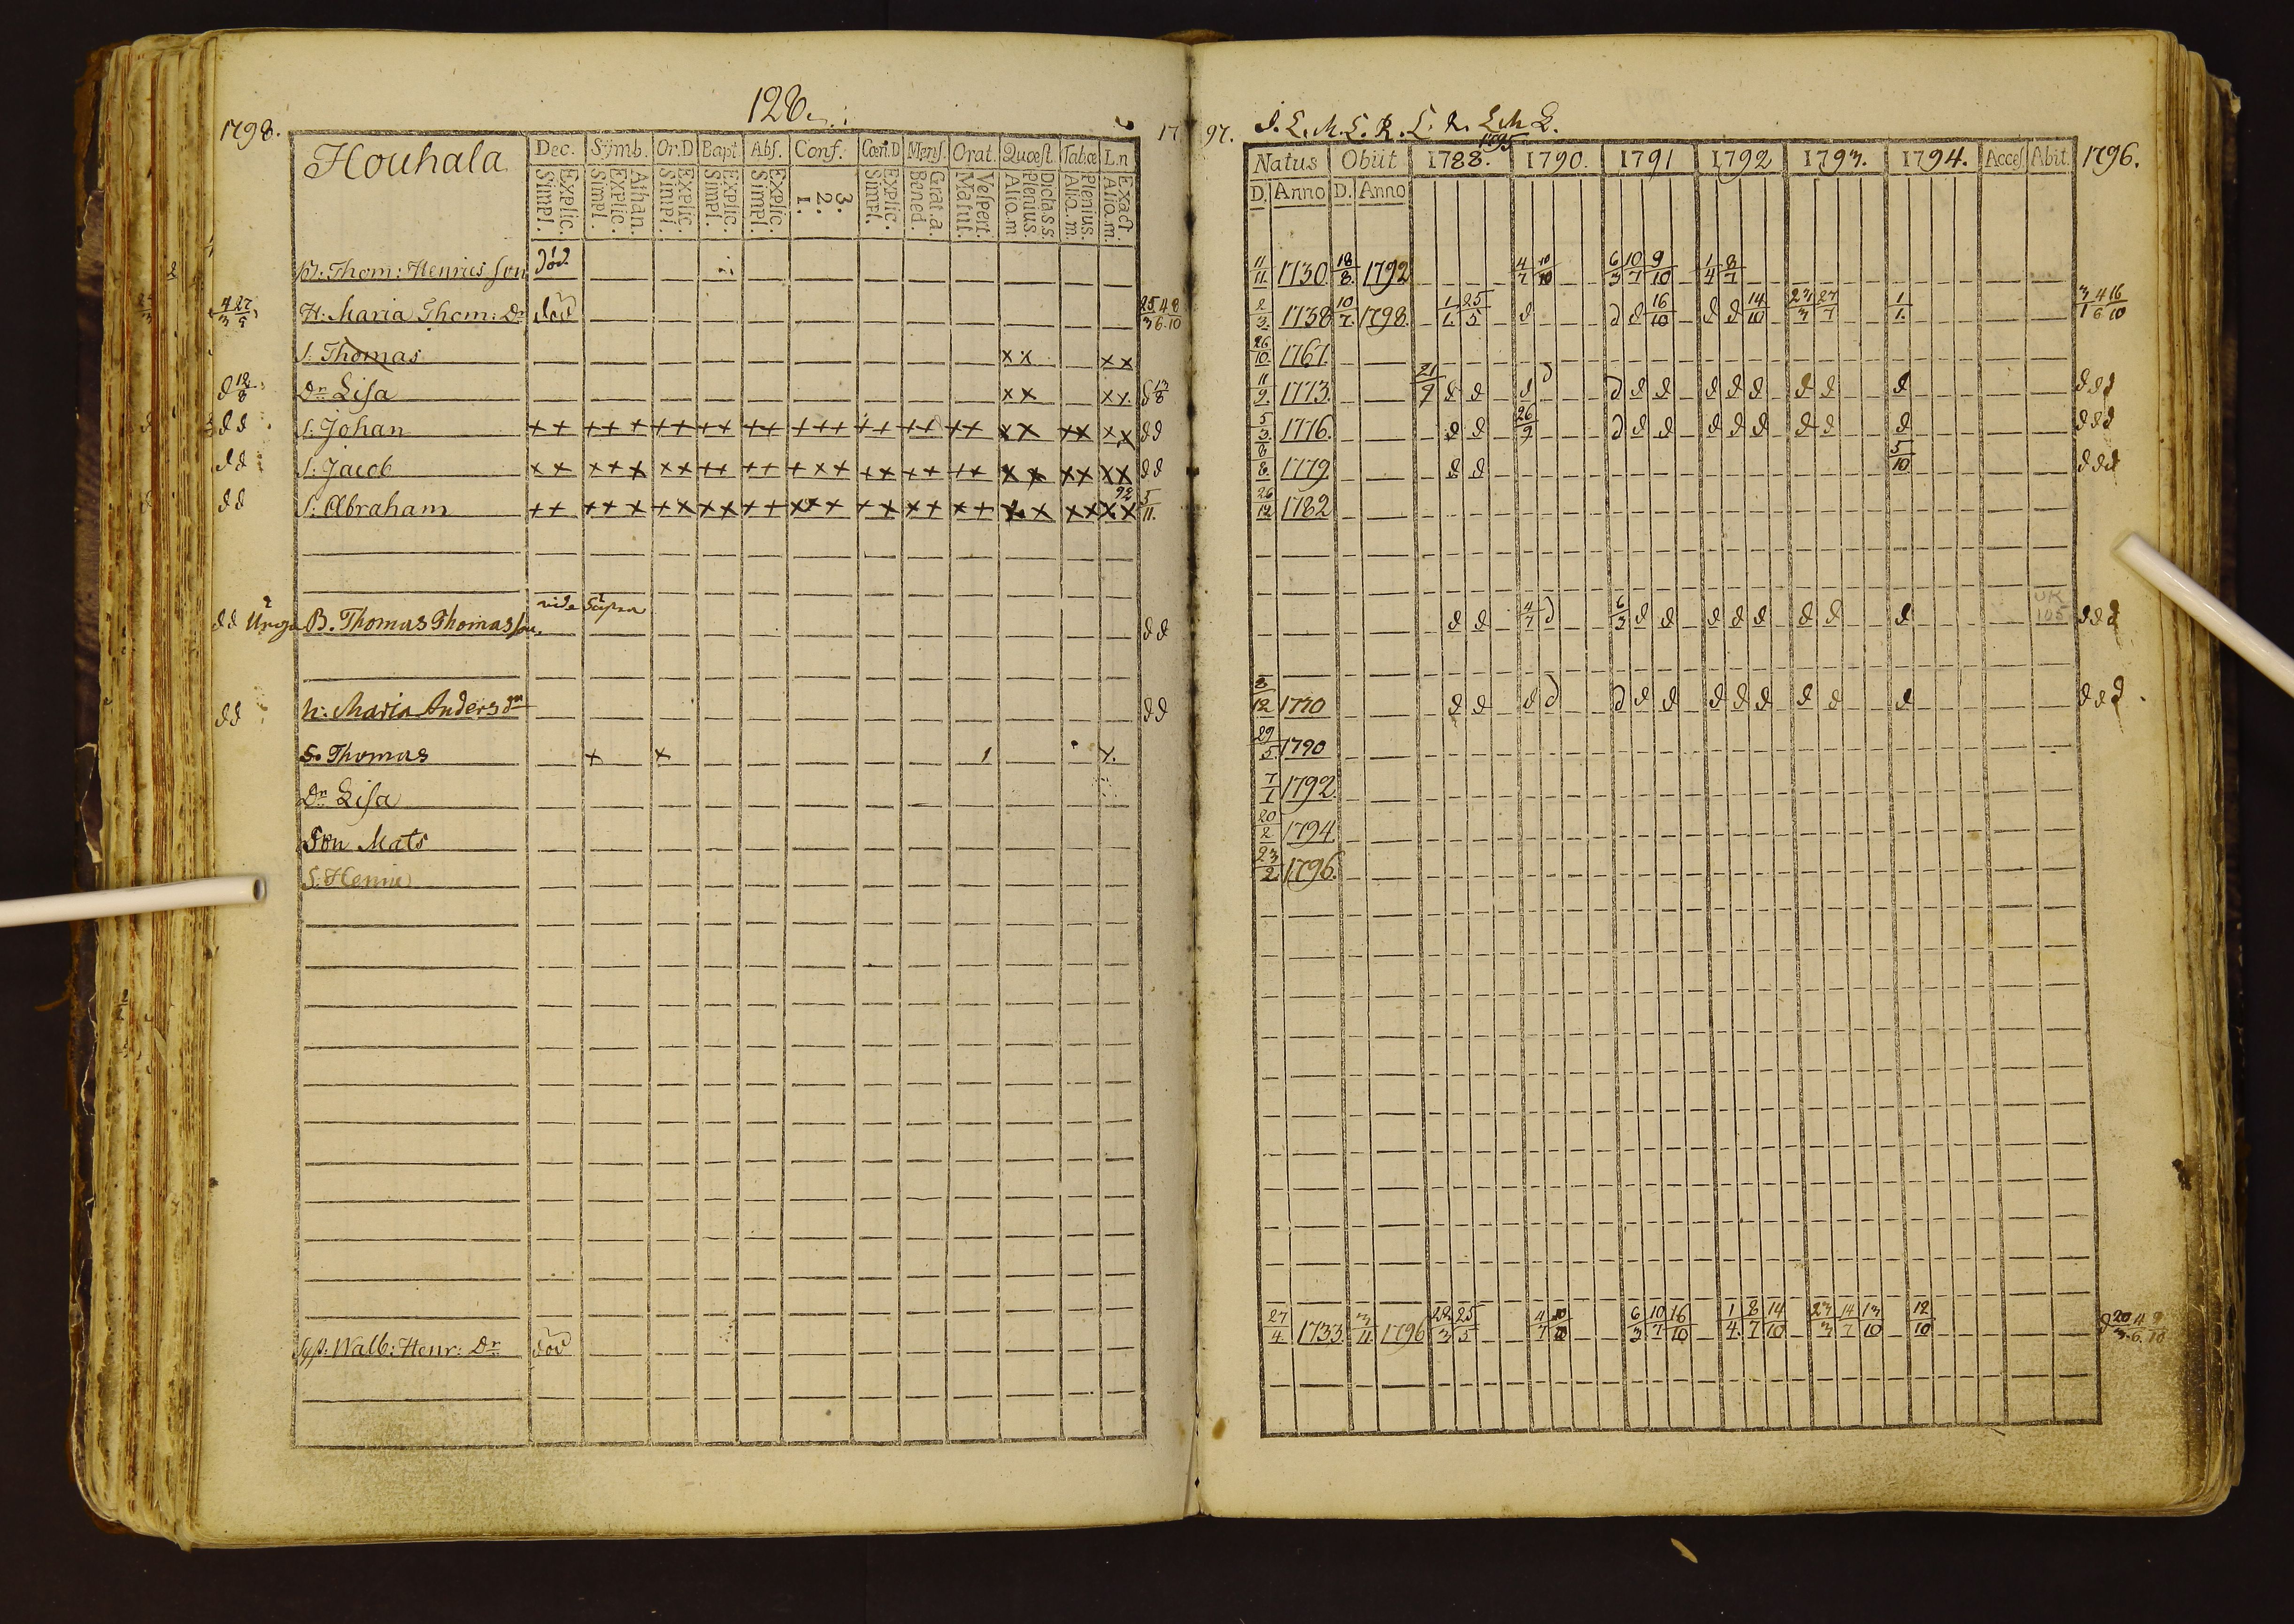 128
1798.
1797.
J. L. M. L. R. L. R. L M L.
1795
Houhala
Dec. Symb. Or.D Bapt. Abs. Conf. Cœn.D Mens. Orat. Quæst. Tabæ L.n
Explic. Simpl. Athan. Explic. Simpl. Explic. Simpl. Explic. Simpl. Explic. Simpl. 3. 2. 1. Explic. Simpl. Grat.a. Bened. Vespert. Matut. Dicta.s.s. Plenius. Aliq.m Plenius. Aliq.m. Exact. Aliq.m.
Natus Obiit 1788. 1790. 1791 1792 1793. 1794. Acces. Abit. 1796.
D. Anno D. Anno
B: Thom: Henrics son död 11/11. 1730 18/8. 1792 4/7 10/10 6/3 10/7 9/10 1/4 8/7
4/3 27/5 H: Maria Thom: Dr död 25/3 4/6 8/10 2/3. 1738 10/7. 1798. 1/1. 25/5 d d d 16/10 d d 14/10 23/3 27/7 1/1. 3/1 4/6 16/10
S: Thomas x x x x 26/10. 1767.
d 12/8 Dr Lisa x x x x d 13/8 11/9. 1773. 21/9 d d d d d d d d d d d d d d d d
d d S: Johan ++ +++ ++ ++ ++ +++ ++ ++ ++ xx xx xx d d 5/3. 1776. d d 26/9 d d d d d d d d d d d d
d d S: Jacob xx xxx xx ++ ++ +xx ++ ++ ++ xx xx xx d d 8/8. 1779. d d 5/10 d d d
d d S: Abraham ++ ++x +x xx ++ xxx ++ x+ x+ xx xx xx 92 5/11. 26/12 1782
vide supra
d d Unga B. Thomas Thomas son. d d d d 4/7 d 6/3 d d d d d d d d UK 105 d d d
d d h: Maria Anders dr d d 8/12 1770 d d d d d d d d d d d d d d d d
S. Thomas + x x. 29/5. 1790
Dr Lisa 7/1 1792.
Son Mats 20/2 1794.
S: Henric 23/2. 1796.
Syst. Walb: Henr: Dr död 27/4 1733. 3/11 1796 22/3 25/5 4/7 10/10 6/3 10/7 16/10 1/4. 8/7 14/10 23/3 14/7 13/10 12/10 d 20/3. 4/6. 9/10